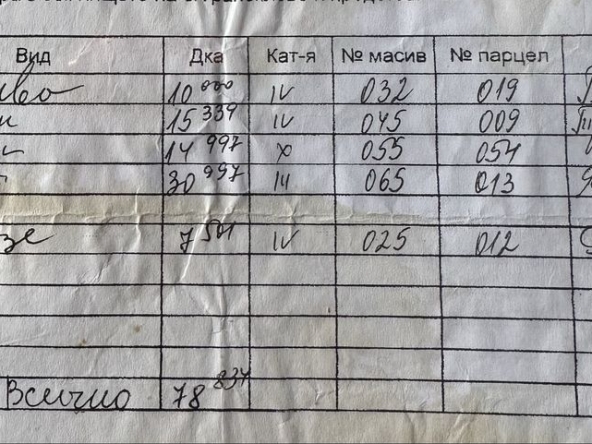 Вид Дка Кат-я № масив № парцел
10 000 IV 032 019
15 339 IV 045 009
14 997 X 055 054
30 997 III 065 013
7 501 IV 025 012
Всичко 78 834